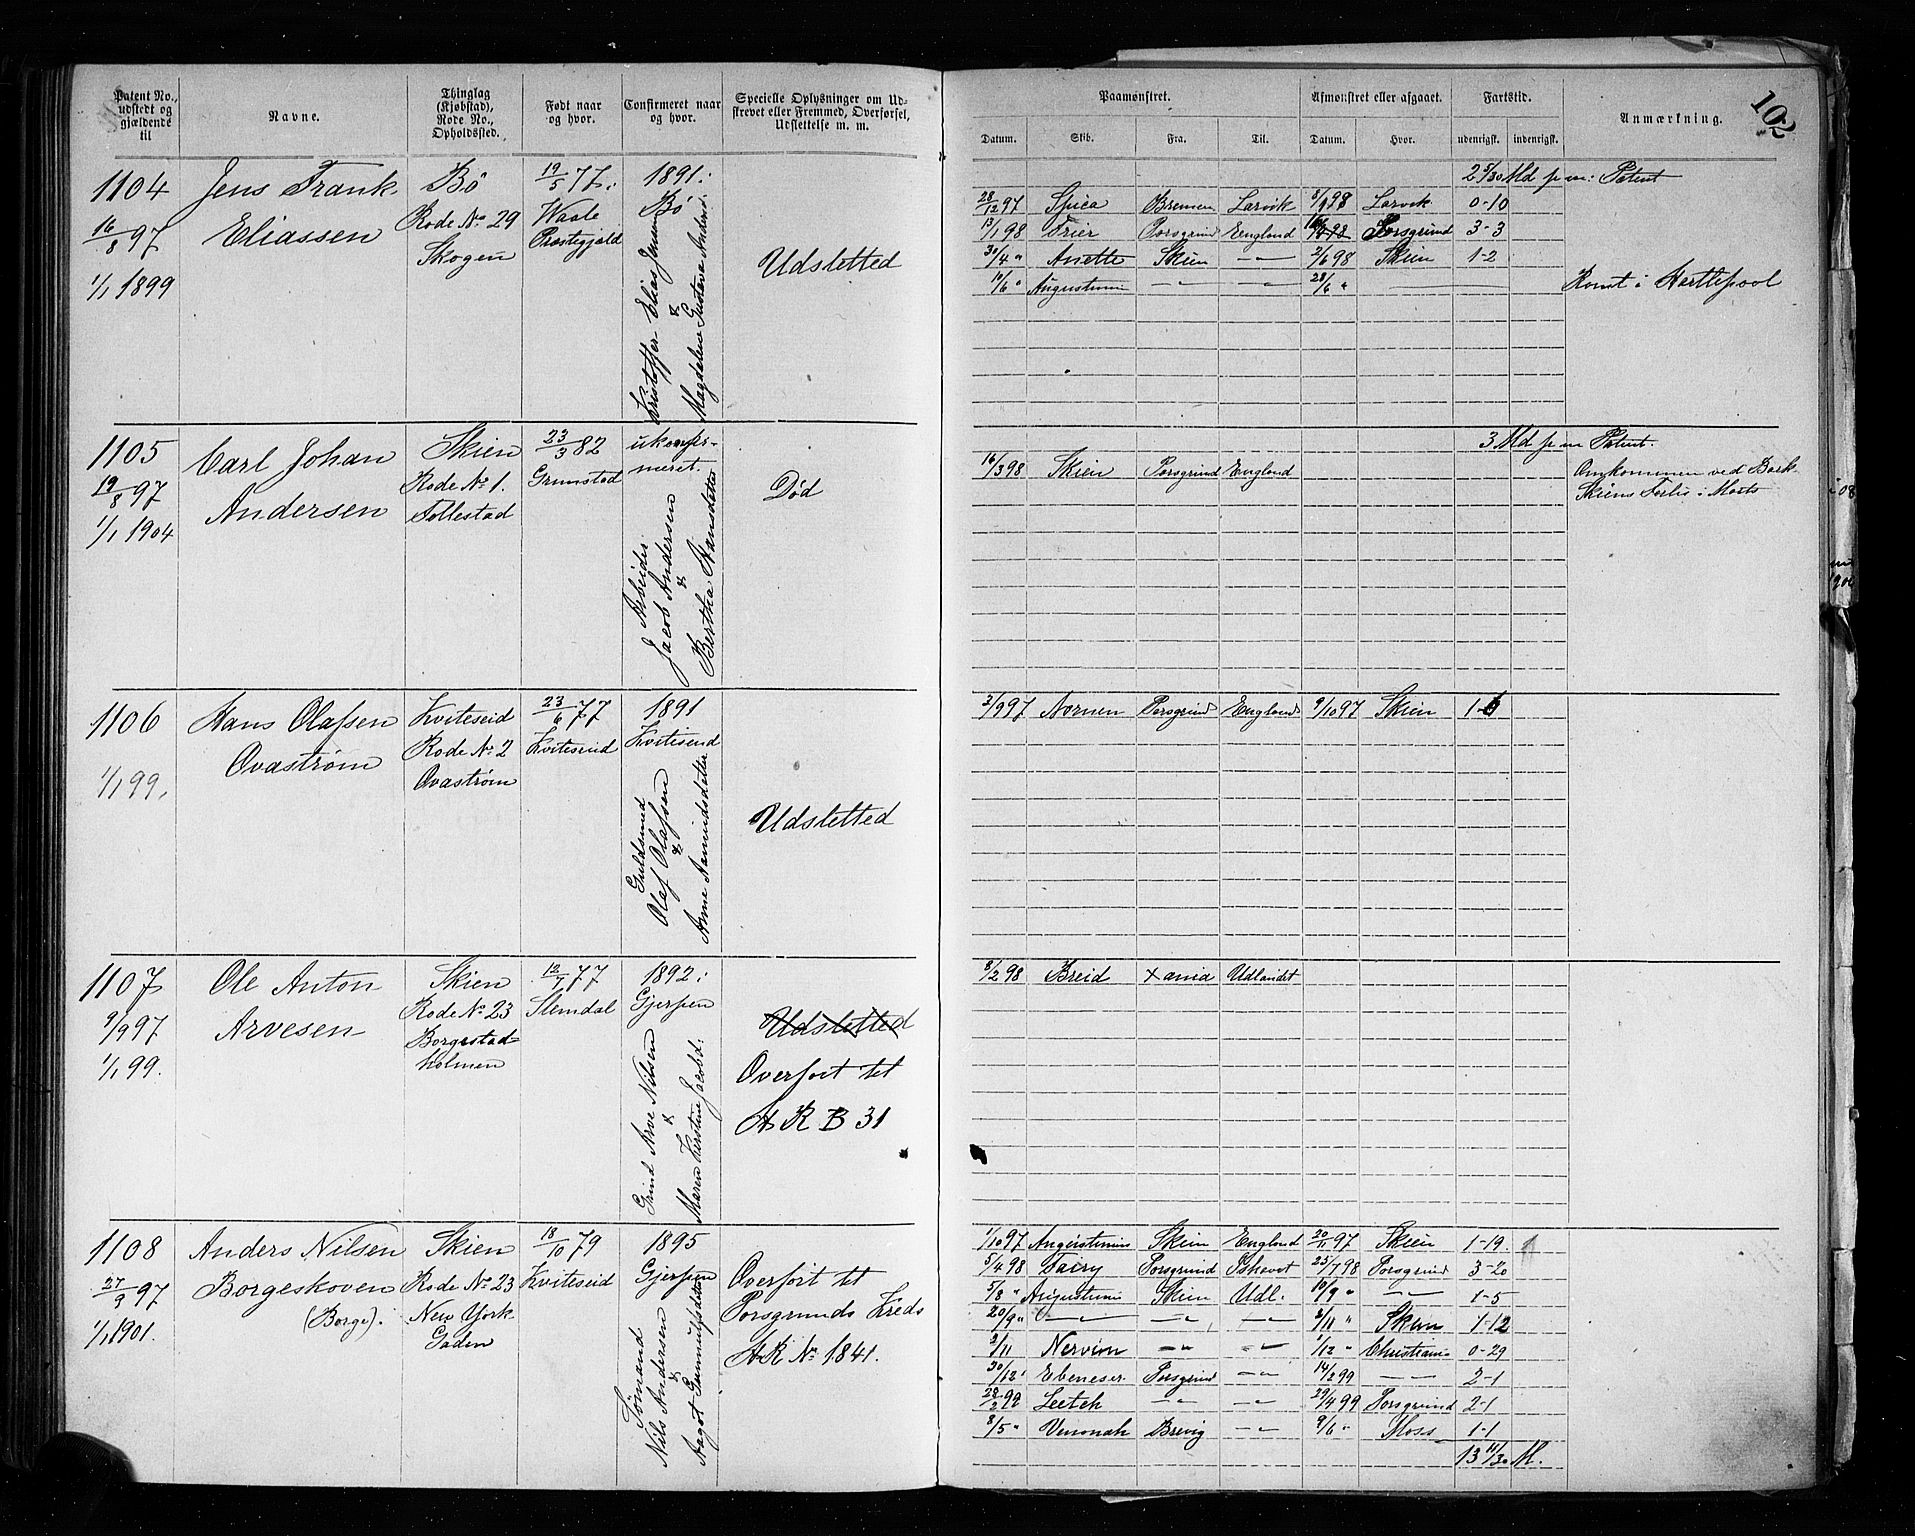 Patent No., udstedt og gjældende til
Navne.
Thinglag (Kjøbstad), Rode No., Opholdssted.
Født naar og hvor.
Confirmeret naar og hvor.
Specielle Oplysninger om Udstrevet eller Fremmed, Overførsel, Udslettelse m. m.
Paamønstret.
Afmønstret eller afgaaet.
Fartstid.
Anmærkning.
102
Datum.
Skib.
Fra.
Til.
Datum.
Hvor.
udenrigsk.
indenrigsk.
1104
16/8 97
1/1 1899
Jens Frank
Eliassen
Bø
Rode No 29
Skogen
19/5 77.
Waale
Præstegjæld
1891.
Bø
Kristoffer Elias Jensen
&
Magdalene Gustava Andersd.
Udsletted
2 5/30 Md p m: Patent
28/12 97 Spica Bremen Larvik 8/1 98 Larvik 0-10
13/1 98 Freier Porsgrund England Porsgrund 3-3
30/4 " Anette Skien -"- 2/6 98 Skien 1-2
10/6 " Augustinus -"- -"- 28/6 "
Rømt i Hartlepool
1105
19/8 97
1/1 1904
Carl Johan
Andersen
Skien
Rode No 1.
Follestad
23/3 82
Grimstad
ukonfir-
meret.
Arbeider
Jacob Andersen
&
Bertha Hansdatter
Død
3 Md p m Patent.
16/3 98 Skien Porsgrund England
Omkommen ved Bark
Skiens Forlis i Marts
1106
1/1 99.
Hans Olafsen
Ovastrøm
Kviteseid
Rode No 2
Ovastrøm
23/6 77
Kviteseid
1891
Kviteseid
Guldsmed
Olaf Olafsen
&
Anne Aamundsdatter
Udslettet
3/9 97 Nornen Porsgrund England 9/10 97 Skien 1-6
1107
9/9 97
1/1 99.
Ole Anton
Arvesen
Skien
Rode No 23
Borgestad-
holmen
12/7 77
Slemdal
1892.
Gjerpen
Arve Nilsen
&
Maren Kirstine Jacobsd.
Udslettet
Overført til
A R B 31
8/2 98 Breid Xania Udlandet
1108
27/9 97
1/1 1901.
Anders Nilsen
Borgeskoven
(Borge).
Skien
Rode No 23
New York-
Gaden
18/10 79
Kviteseid
1895
Gjerpen
Sømand
Nils Andersen
&
Aagot Gunnulfsdatter
Overført til
Porsgrunds Kreds
A R No 1841.
1/10 97 Augustinus Skien England 20/11 97 Skien 1-19.
5/4 98 Fairy Porsgrund 25/7 98 Porsgrund 3-20
5/8 " Augustinus Skien Udl. 10/9 " -"- 1-5
20/9 " -"- -"- -"- 2/11 " Skien 1-12
2/11 Nervion -"- -"- 1/12 " Christiania 0-29
30/12 " Ebeneser Porsgrund -"- 14/2 99 -"- 2-1
28/2 99 -"- -"- 29/4 99 Porsgrund 2-1
8/5 " Venonah Brevig -"- 9/6 " Moss 1-1
13 11/30 M.